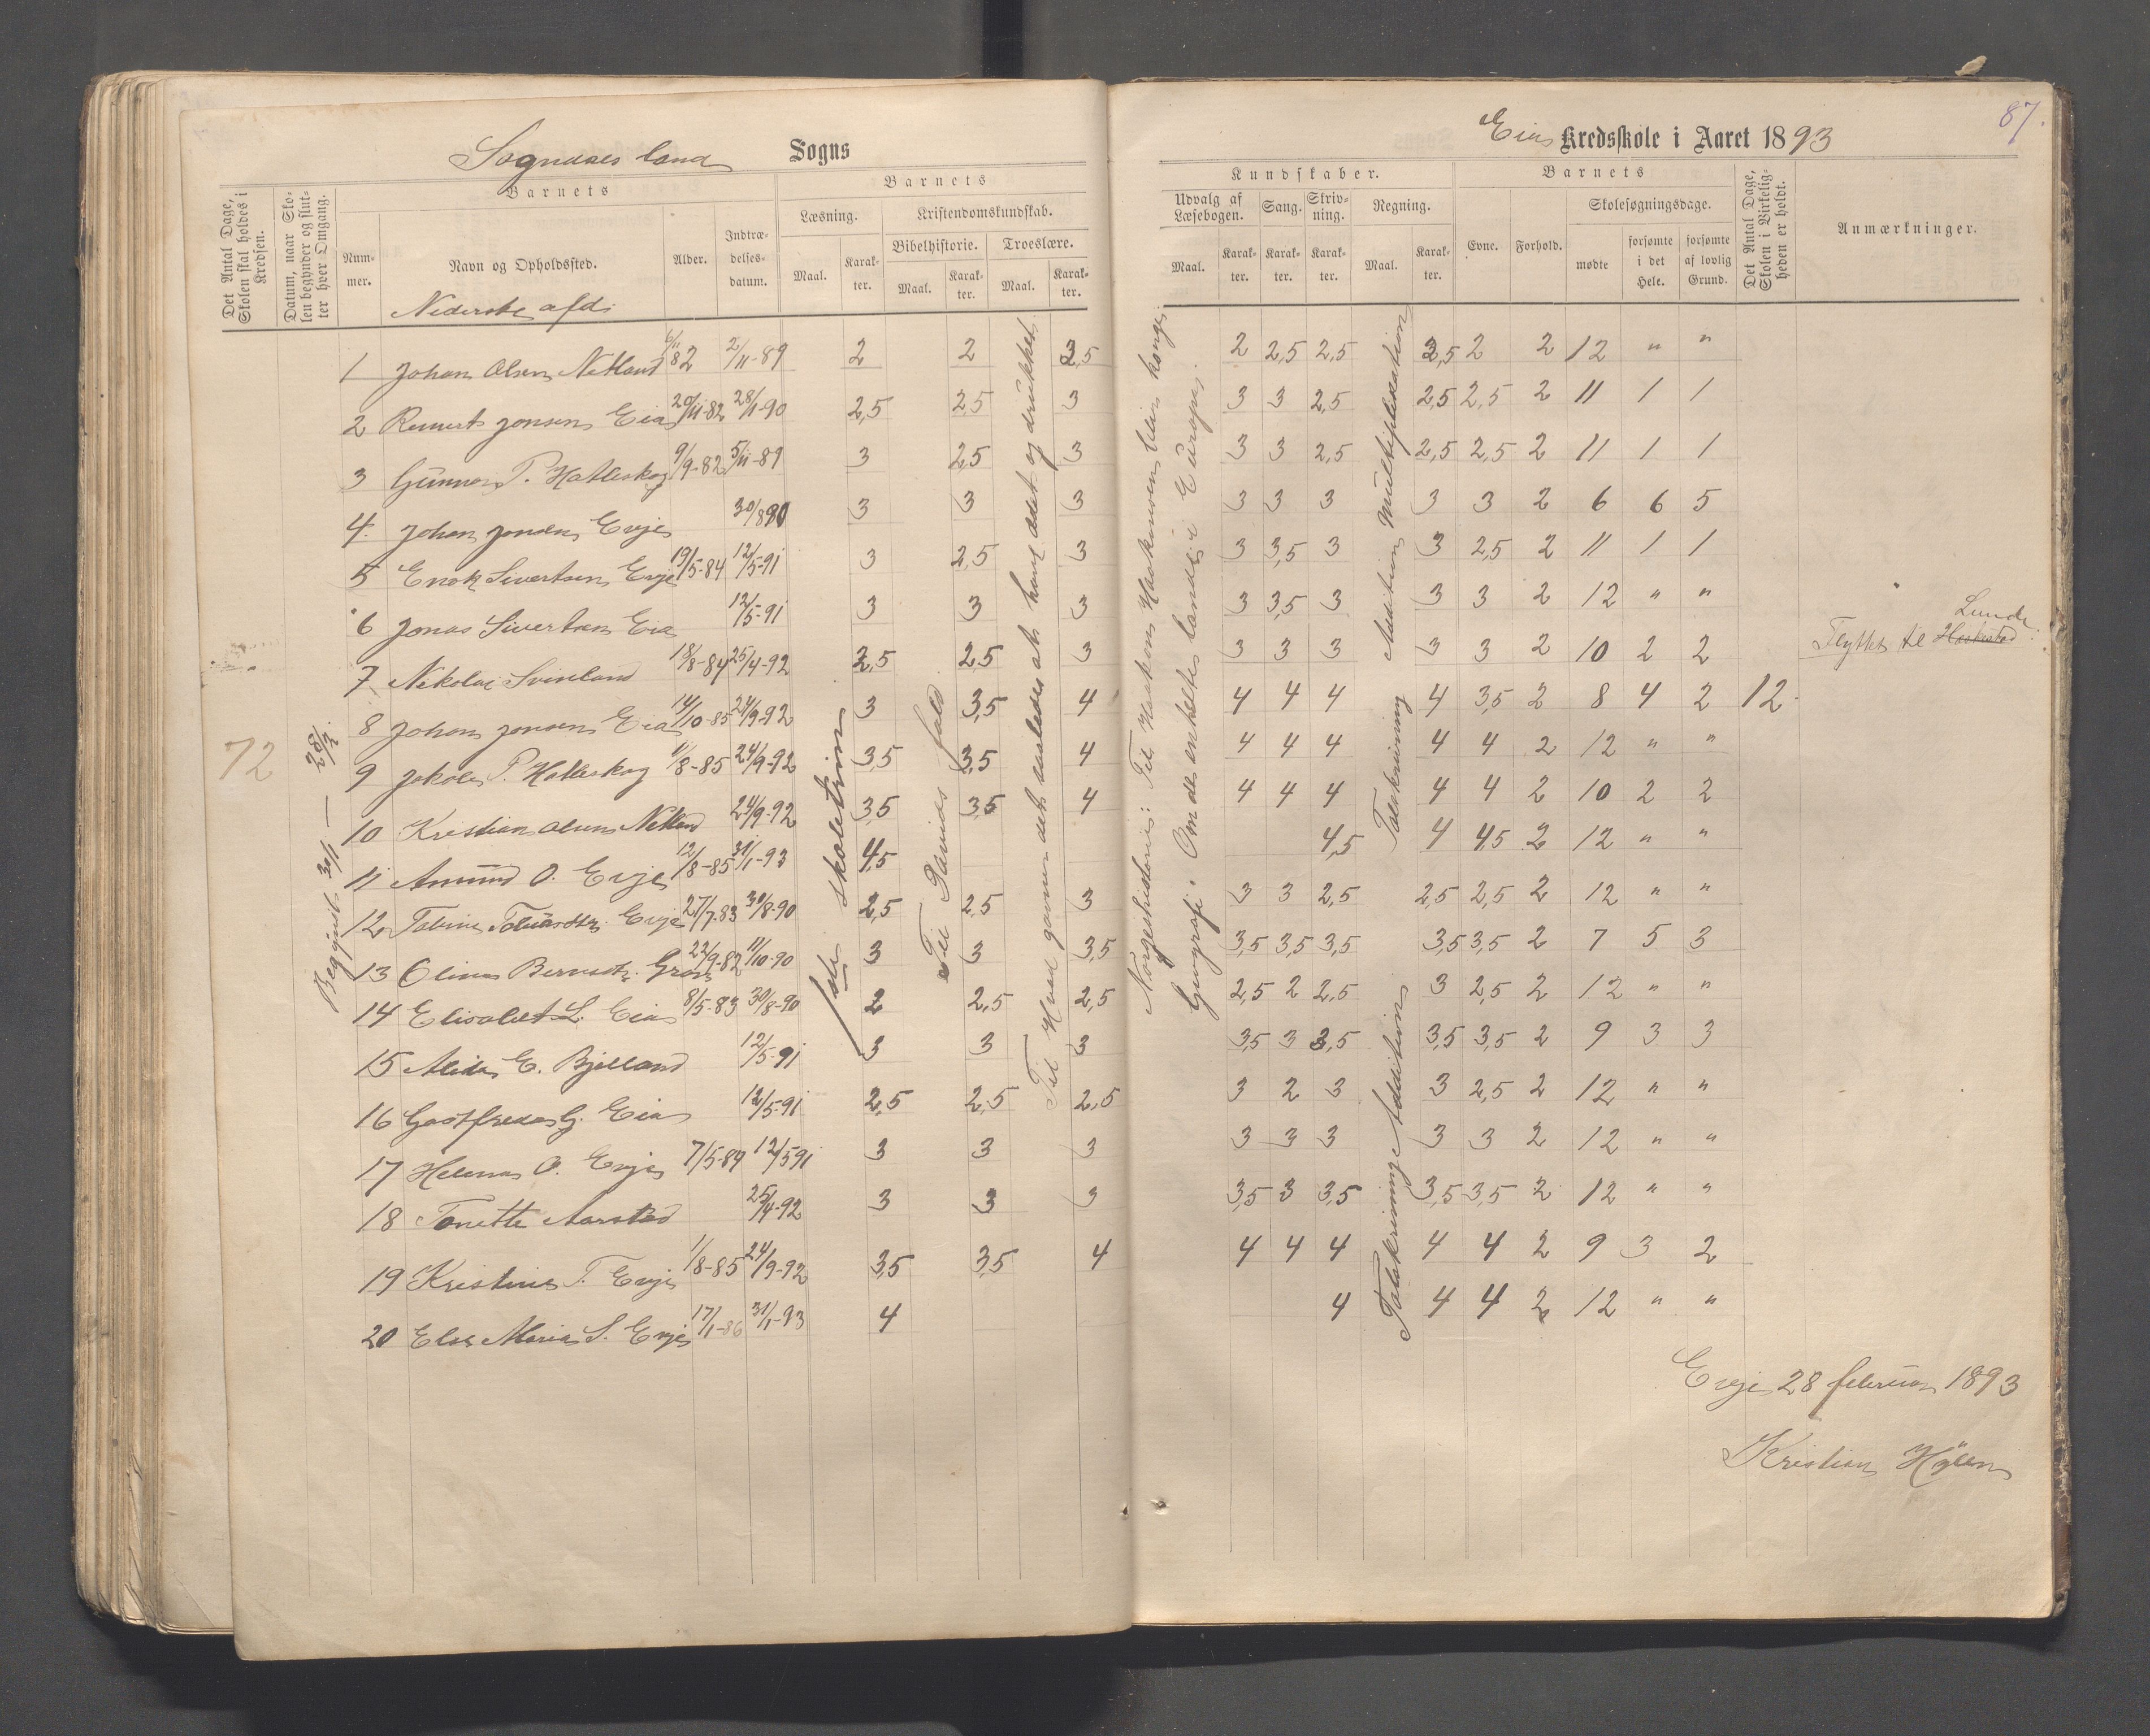 87.
Sogndals land Sogns
Eia Kredsskole i Aaret 1893
Det Antal Dage, Skolen skal holdes i Kredsen.
Datum, naar Skolen begynder og slutter hver Omgang.
Barnets
Nummer.
Navn og Opholdssted.
Alder.
Indtrædelsesdatum.
Barnets
Læsning.
Maal.
Karakter.
Kristendomskundskab.
Bibelhistorie.
Maal.
Karakter.
Troeslære.
Maal.
Karakter.
Kundskaber.
Udvalg af Læsebogen.
Maal.
Karakter.
Sang.
Karakter.
Skrivning.
Karakter.
Regning.
Maal.
Karakter.
Barnets
Evne.
Forhold.
Skolesøgningsdage.
mødte
forsømte i det Hele.
forsømte af lovlig Grund.
Det Antal Dage, Skolen i Virkeligheden er holdt.
Anmærkninger.
Nederste afd.
1 Johan Olsen Netland 6/11 82 2/11-89 2 2 2,5 2 2,5 2,5 2,5 2 2 12 " "
2 Reinert Jonsen Eia 20/11-82 28/1-90 2,5 2,5 3 3 3 2,5 2,5 2,5 2 11 1 1
3 Gunnar P. Hatleskog 9/9-82 5/11-89 3 2,5 3 3 3 2,5 2,5 2,5 2 11 1 1
4. Johan Jonsen Evje 30/8 90 3 3 3 3 3 3 3 3 2 6 6 5
5 Enok Sivertsen Evje 19/5-84 12/5-91 3 2,5 3 3 3,5 3 3 2,5 2 11 1 1
6 Jonas Sivertsen Eia 12/5-91 3 3 3 3 3,5 3 3 3 2 12 " "
7 Nikolai Svinland 18/8-84 25/4-92 2,5 2,5 3 3 3 3 3 3 2 10 2 2 Flyttet til Haakestad Lunde
8 Johan Jonsen Eia 14/10-85 24/9-92 3 3,5 4 4 4 4 4 3,5 2 8 4 2 12.
9 Jakob P. Hatleskog 1/8-85 24/9-92 3,5 3,5 4 4 4 4 4 4 2 12 " "
10 Kristian Olsen Netland 24/9-92 3,5 3,5 4 4 4 4 4 4 2 10 2 2
11 Amund O. Evje 12/8-85 31/1-93 4,5 4,5 4 4,5 2 12 " "
12 Tobine Tobiasdtr. Evje 27/7-83 30/8-90 2,5 2,5 3 3 3 2,5 2,5 2,5 2 12 " "
13 Oline 22/9-82 11/10-90 3 3 3,5 3,5 3,5 3,5 3,5 3,5 2 7 5 3
14 Elisabet L. Eia 8/5-83 30/8-90 2 2,5 2,5 2,5 2 2,5 3 2,5 2 12 " "
15 Alida E. Bjelland 12/5-91 3 3 3 3,5 3 3,5 3,5 3,5 2 9 3 3
16 Gaatfreda G. Eia 12/5-91 2,5 2,5 2,5 3 2 3 3 2,5 2 12 " "
17 Helena O. Evje 7/5-84 12/5 91 3 3 3 3 3 3 3 3 2 12 " "
18 Tonette Aarstad 25/4-92 3 3 3 3,5 3 3,5 3,5 3,5 2 12 " "
19 Kristine T. Evje 1/8-85 24/9-92 3,5 3,5 4 4 4 4 4 4 2 9 3 2
20 Else Maria S. Evje 17/1-86 31/1-93 4 4 4 4 2 12 " "
72
Begyndt 30/1 — 28/2
1ste skoletrin
Til Davids fald
Til Hvad gavner det saaledes at have ædt og drukket
Norgeshistorie: Til Hakon Haakonsen blev konge.
Geografi. Om de enkelte lande i Europa.
Talskrivning Addition Multiplikation
Talskrivning Addition
Evje 28 februar 1893
Kristian Hylen